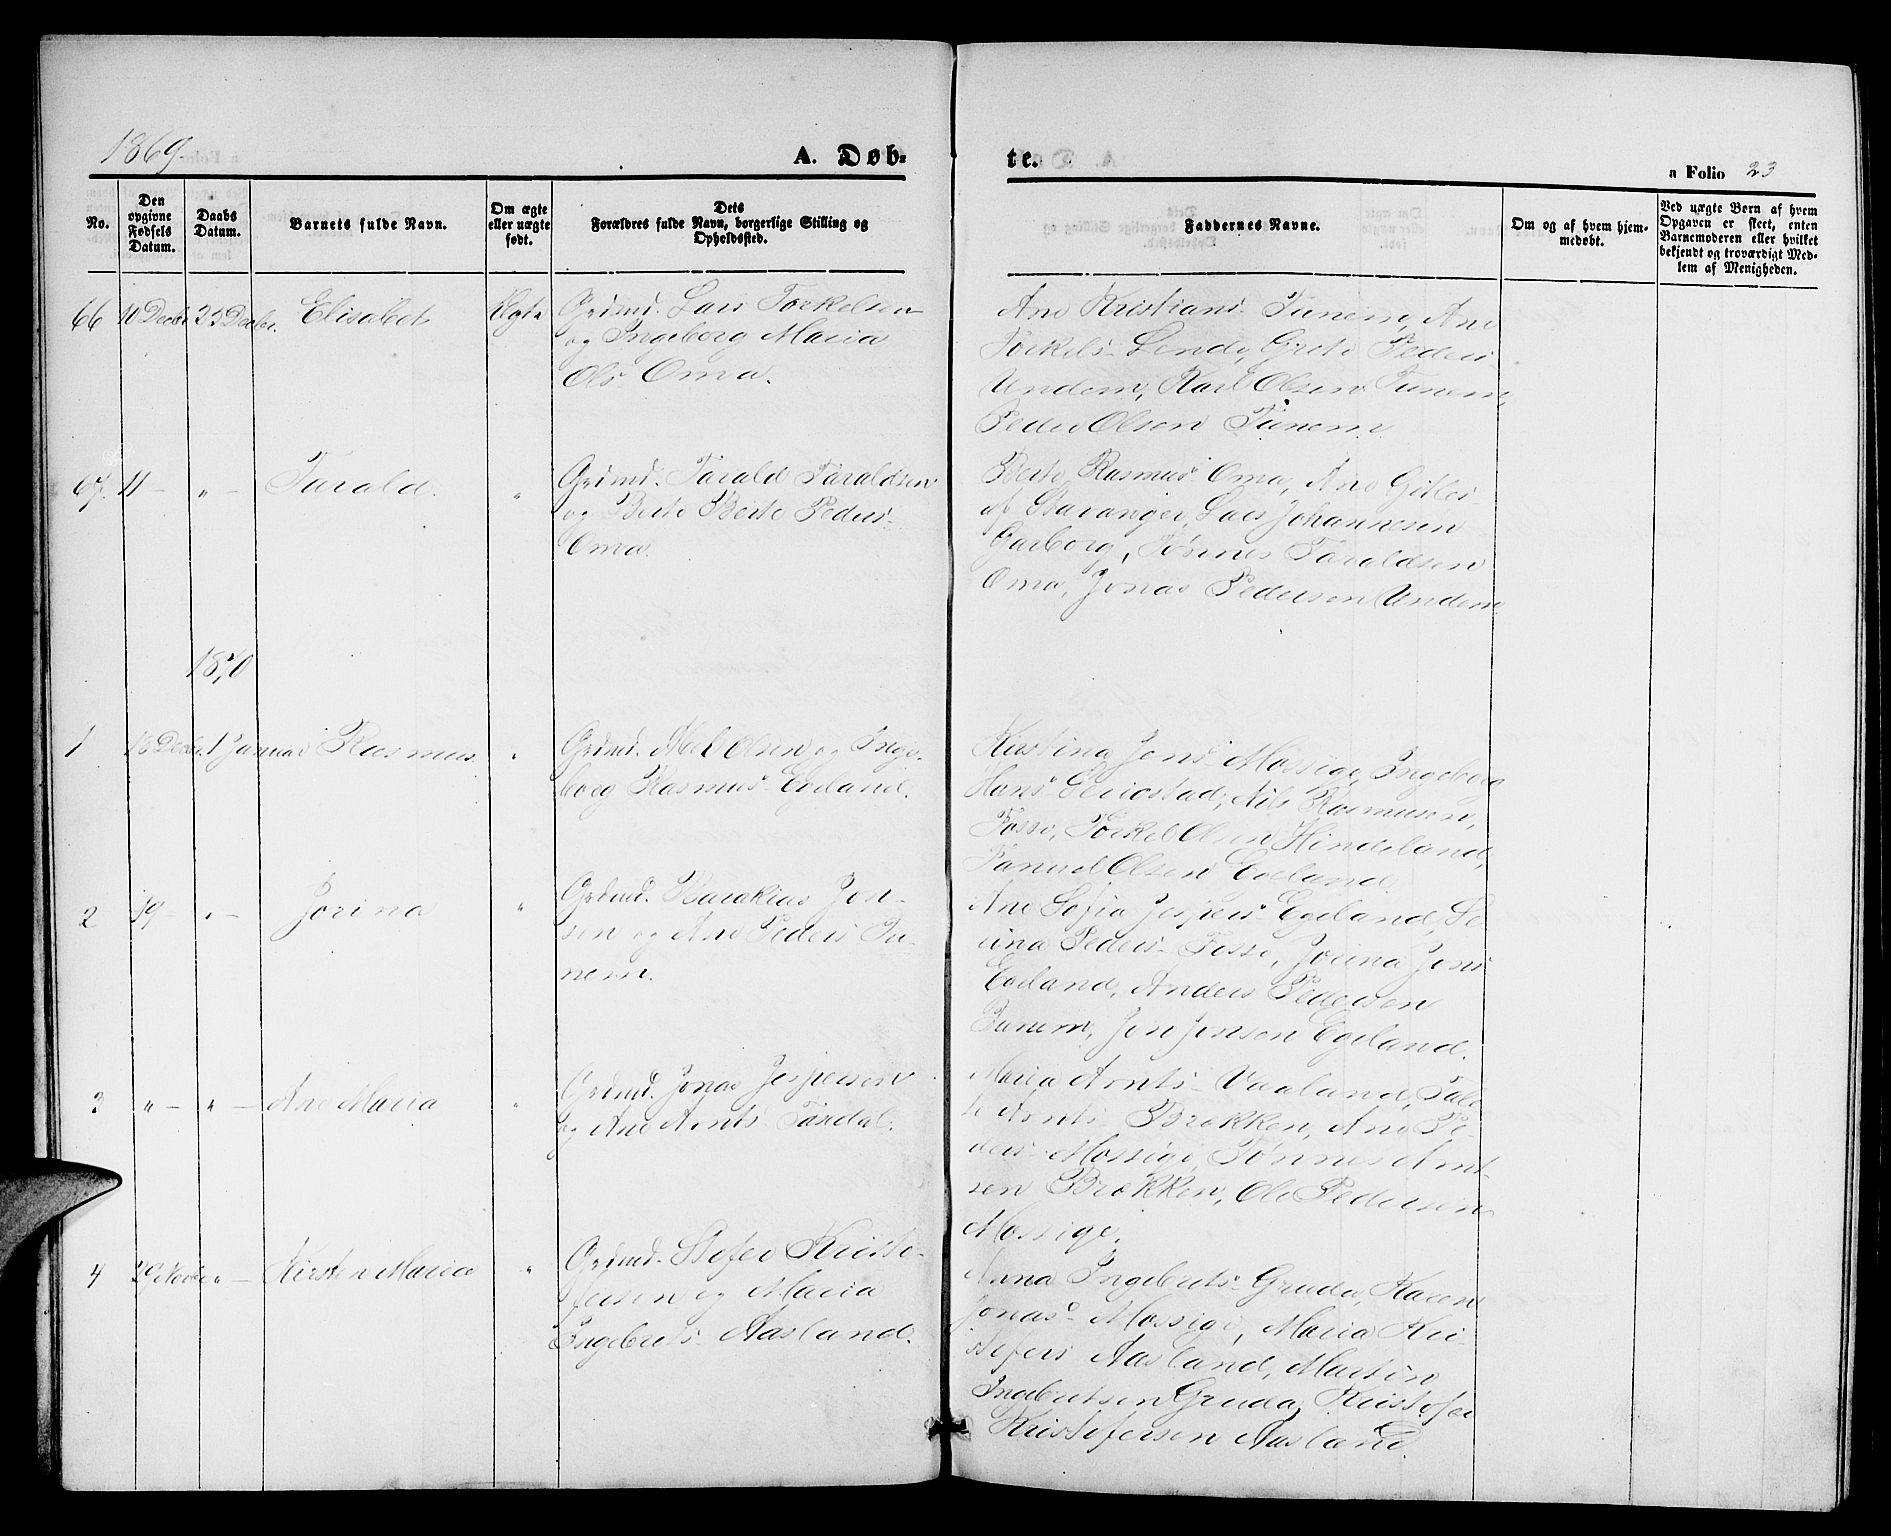 1869.
A. Døb-
te.
a Folio 23
No.
Den opgivne Fødsels Datum.
Daabs Datum.
Barnets fulde Navn.
Om ægte eller uægte født.
Dets Forældres fulde Navn, borgerlige Stilling og Opholdssted.
Faddernes Navne.
Om og af hvem hjemmedøbt.
Ved uægte Børn af hvem Opgaven er skeet, enten Barnemoderen eller hvilket bekjendt og troværdigt Medlem af Menigheden.
66 10 Decbr. 25 Decbr. Elisabet Ægte Grdmd. Lars Torkelsen
og Ingeborg Maria
Ols- Oma.
Ane Kristians- Tunem, Ane
Torkels- Lende, Grete Peders-
Undem, Karl Olsen Tunem,
Peder Olsen Tunem.
67. 11 — " — Tarald. " Grdmd. Tarald Taraldsen
og Berte Berte Peders-
Oma.
Berte Rasmus- Oma, Ane Gitles-
af Stavanger, Lars Johannesen
Garborg, Tønnes Taraldsen
Oma, Jonas Pedersen Undem
1870
1 18 Decbr. 1 Januar Rasmus. " Grdmd. Abel Olsen og Inge-
borg Rasmus- Egeland.
Kristina Jens- Mossige, Ingeborg
Hans- Eeriostad, Nils Rasmusen,
Fosse, Torkel Olsen Hindeland,
Samuel Olsen Egeland.
2 19 — " — Jorina " Grdmd. Barakias Jon-
sen og Ane Peders- Tu-
nem.
Ane Sofia Jespers- Egeland, Se-
rina Peders- Fosse, Jorina Jons-
Egeland, Anders Pedersen
Tunem, Jon Jonsen Egeland.
3 " — " — Ane Maria " Grdmd. Jonas Jespersen
og Ane Arnts- Tørdal.
Maria Arnts- Vaaland,
Arnts- Brekken, Ane Pe-
ders- Mossige, Tønnes Arnt-
sen Brekken, Ole Pedersen
Mossige.
4 29 Novbr. " — Kirsten Maria " Grdmd. Stefer Kristo-
fersen og Maria
Ingebrets- Aasland.
Anna Ingebrets- Gruda, Karen
Jonas- Mossige, Maria Kri-
stofers Aasland, Martin
Ingebretsen Gruda, Kristofer
Kristofersen Aasland.